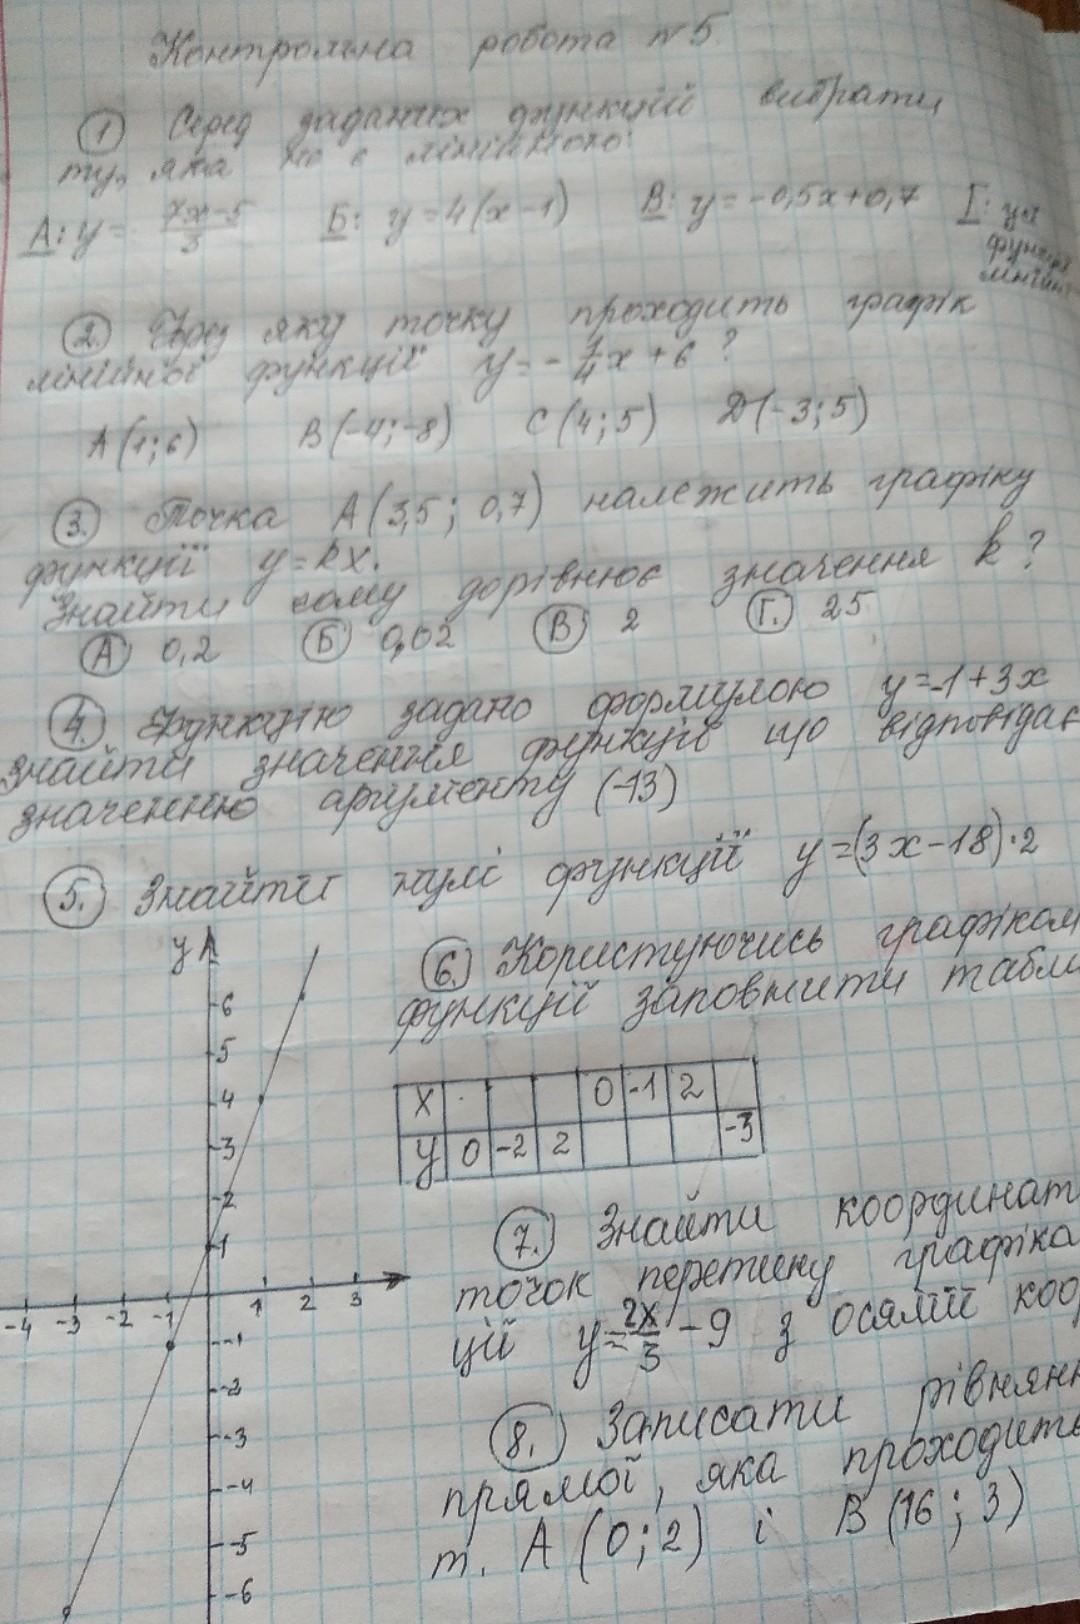 Контрольна робота №5
1 Серед заданих функцій вибрати
ту, яка не є лінійною:
А: y = 7x-5/3 Б: y = 4(x-1) В: y = -0,5x+0,7 Г: усі
функції
лінійні
2. Через яку точку проходить графік
лінійної функції y = - 1/4 x + 6 ?
A(1;6) B(-4;-8) C(4;5) D(-3;5)
3. Точка A(3,5; 0,7) належить графіку
функції y=kx.
Знайти чому дорівнює значення k?
А 0,2 Б 0,02 В 2 Г. 25
4. Функцію задано формулою y=-1+3x
Знайти значення функції що відповідає
значенню аргументу (-13)
5. Знайти нулі функції y=(3x-18)·2
6. Користуючись графіком
функції заповнити табли
y
6
5
4
3
2
1
-4 -3 -2 -1 1 2 3
-1
-2
-3
-4
-5
-6
x 0 -1 2
y 0 -2 2 -3
7. Знайти координат
точок перетину графіка
ції y = 2x/3 - 9 з осями коор
8. Записати рівнян
прямої, яка проходить
т. A (0;2) і B (16; 3)